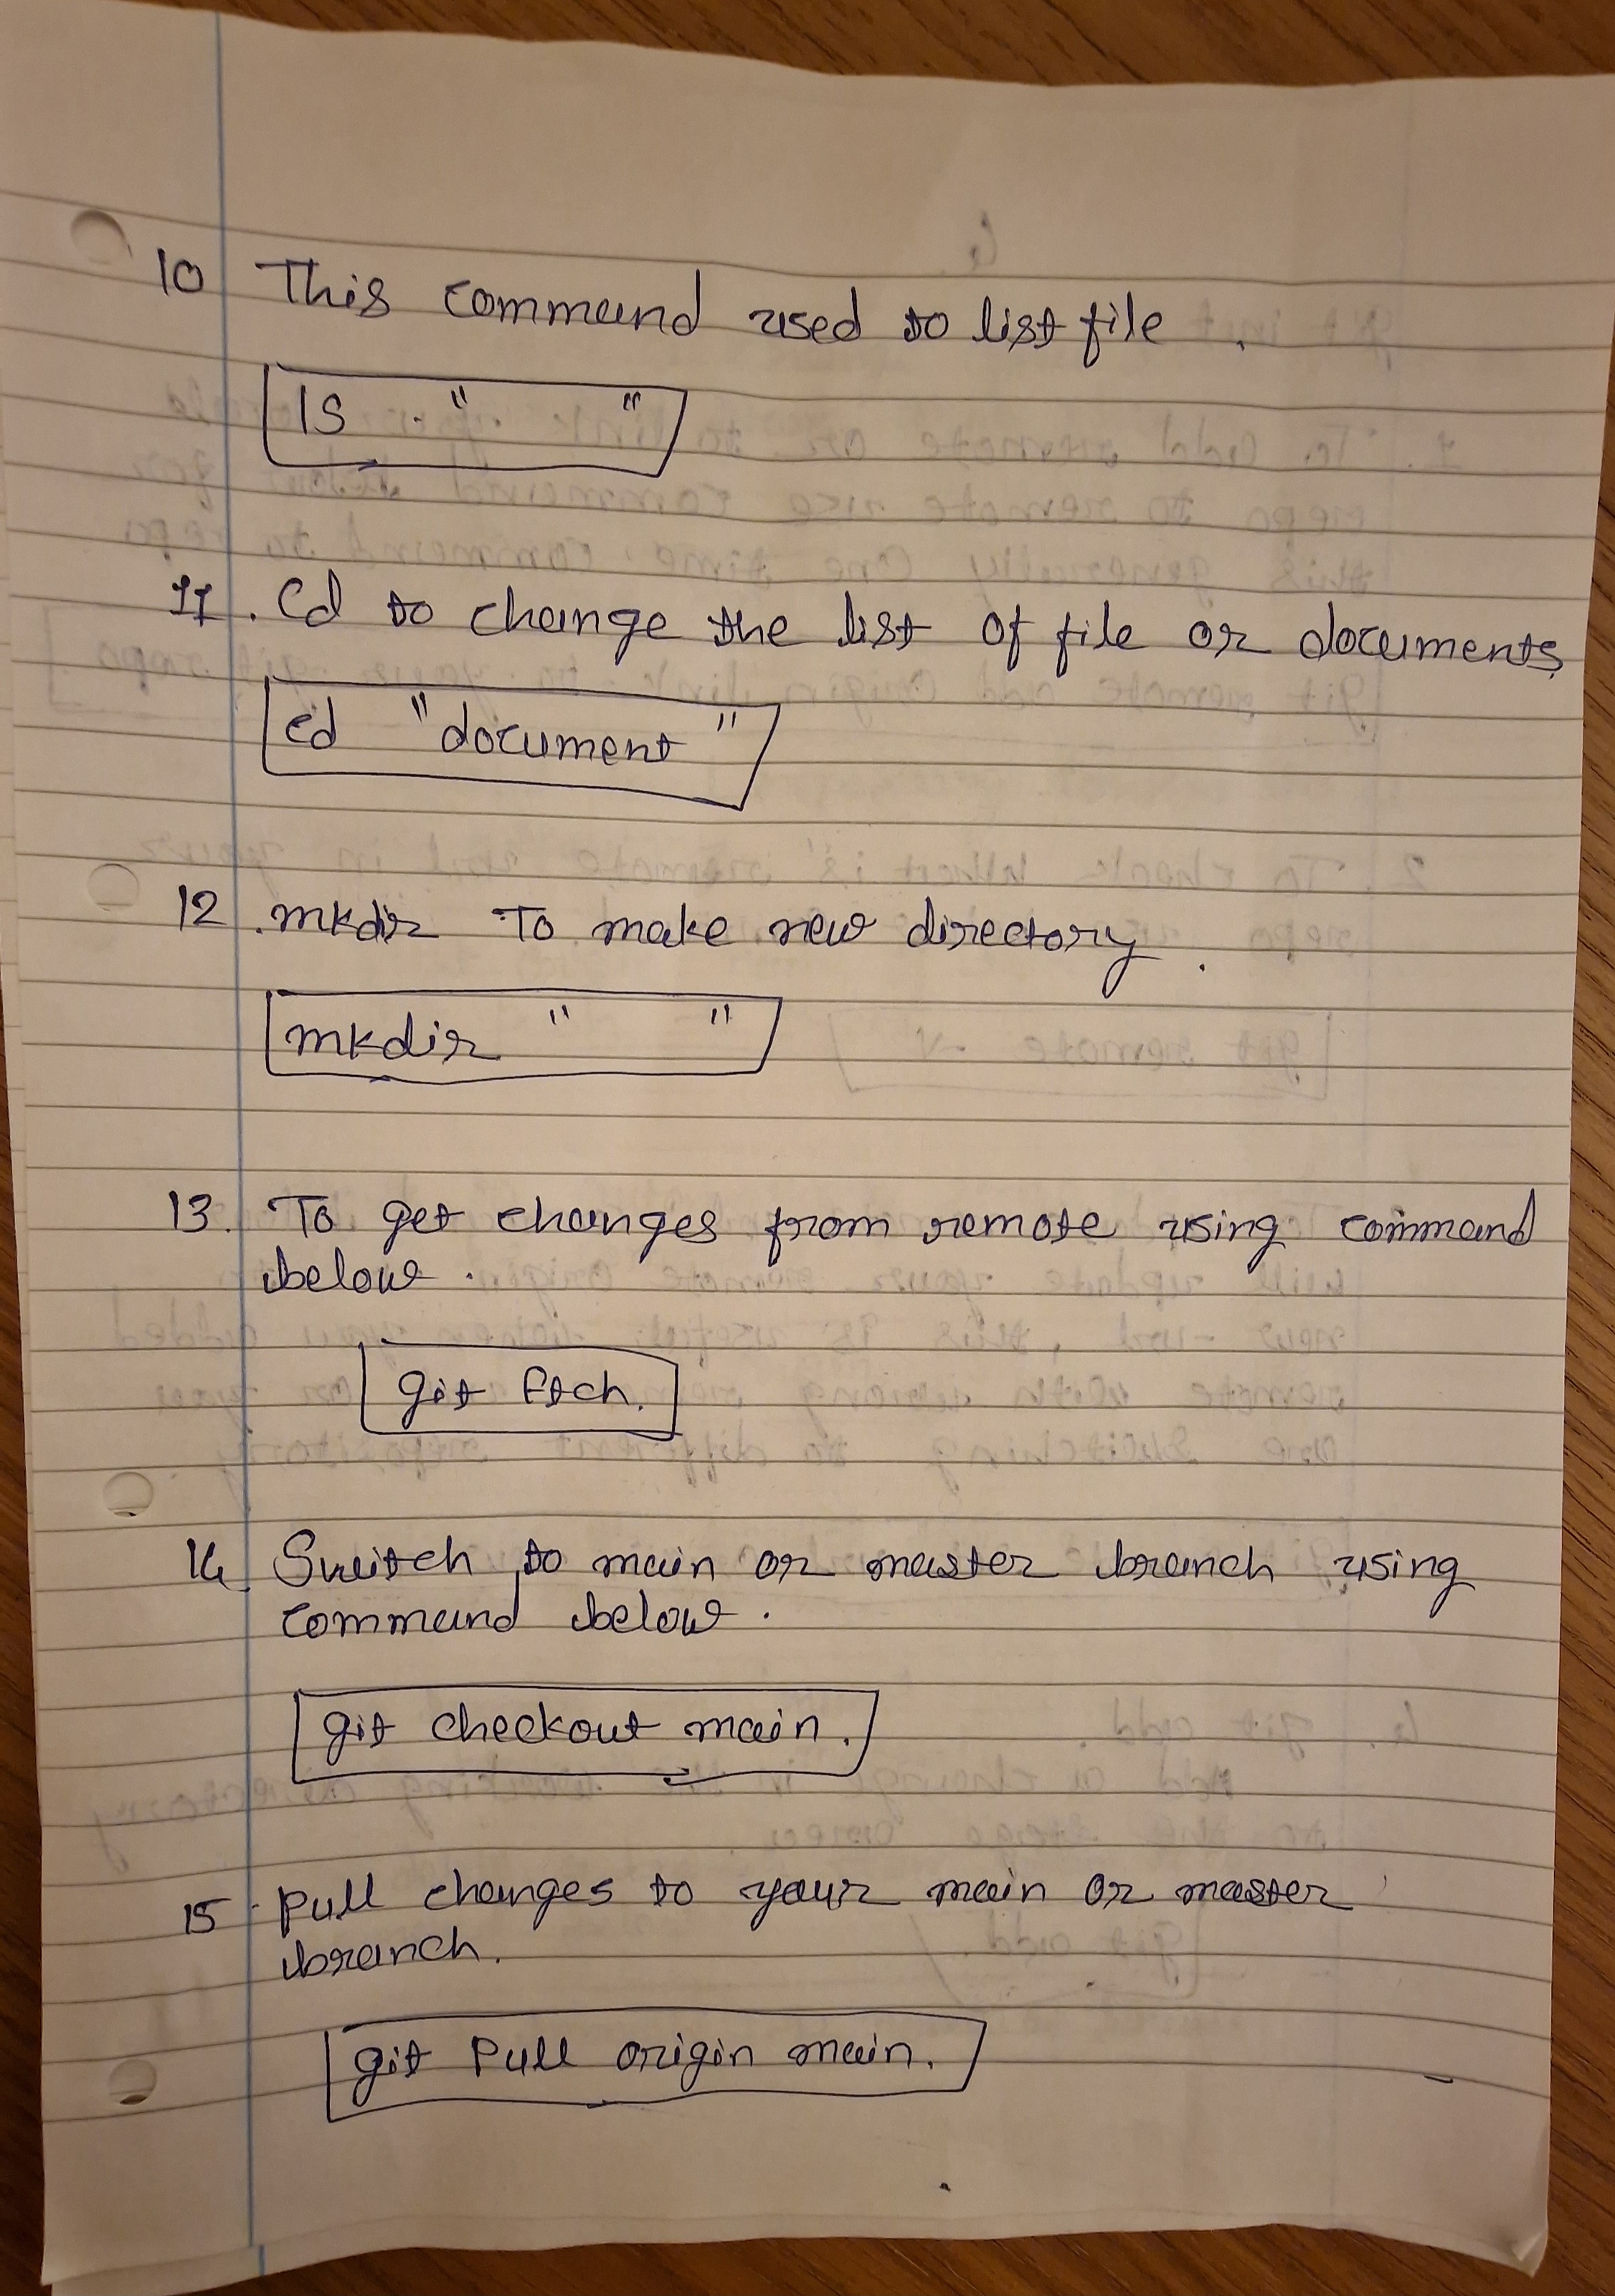 10 This command used to list file.
ls " "
11. Cd to change the list of file or documents
cd "document"
12. mkdir To make new directory.
mkdir " "
13. To get changes from remote using command
below.
git ftch.
14. Switch to main or master branch using
command below.
git checkout main.
15 Pull changes to your main or master
branch.
git Pull origin main.